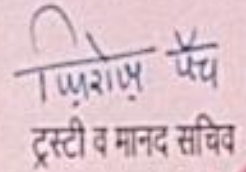 फ़िरोज़ पैच
ट्रस्टी व मानद सचिव